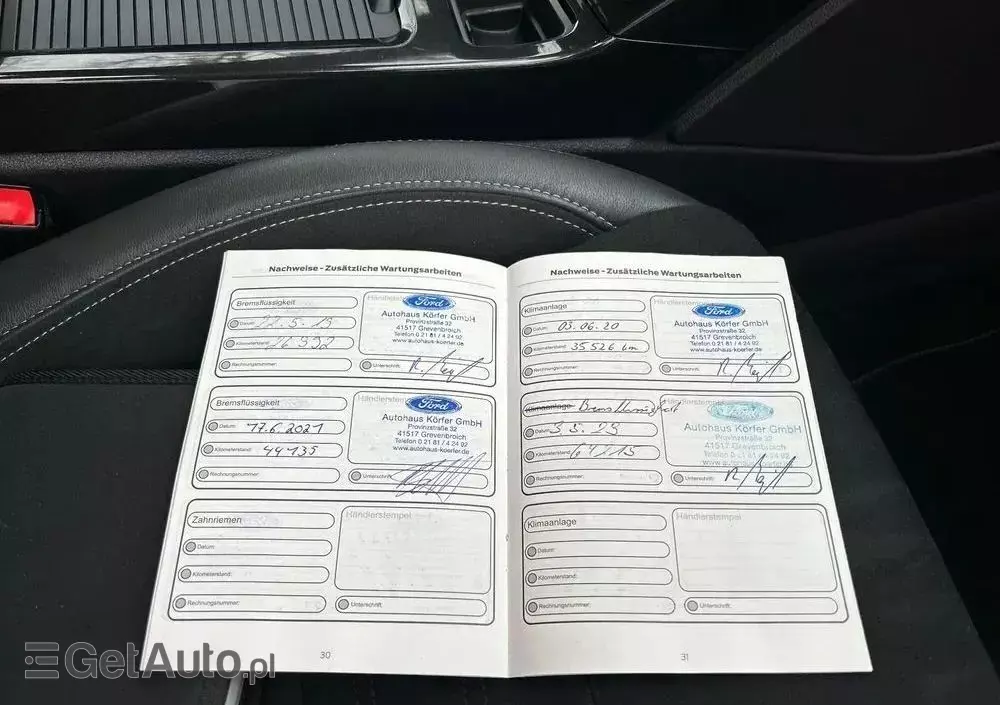 Nachweise - Zusätzliche Wartungsarbeiten
Bremsflüssigkeit
Datum: 22.5.19
Kilometerstand: 26992
Rechnungsnummer:
Händlerstempel
Ford
Autohaus Körfer GmbH
Provinzstraße 32
41517 Grevenbroich
Telefon 0 21 81 / 4 24 92
www.autohaus-koerfer.de
Unterschrift:
Bremsflüssigkeit
Datum: 17.6.2021
Kilometerstand: 44135
Rechnungsnummer:
Händlerstempel
Ford
Autohaus Körfer GmbH
Provinzstraße 32
41517 Grevenbroich
Telefon 0 21 81 / 4 24 92
www.autohaus-koerfer.de
Unterschrift:
Zahnriemen
Datum:
Kilometerstand:
Rechnungsnummer:
Händlerstempel
Unterschrift:
30
Nachweise - Zusätzliche Wartungsarbeiten
Klimaanlage
Datum: 03.06.20
Kilometerstand: 35526 km
Rechnungsnummer:
Händlerstempel
Ford
Autohaus Körfer GmbH
Provinzstraße 32
41517 Grevenbroich
Telefon 0 21 81 / 4 24 92
www.autohaus-koerfer.de
Unterschrift:
Klimaanlage Bremsflüssigkeit
Datum:
Kilometerstand: 64115
Rechnungsnummer:
Händlerstempel
Ford
Autohaus Körfer GmbH
Provinzstraße 32
41517 Grevenbroich
Telefon 0 21 81 / 4 24 92
www.autohaus-koerfer.de
Unterschrift:
Klimaanlage
Datum:
Kilometerstand:
Rechnungsnummer:
Händlerstempel
Unterschrift:
31
GetAuto.pl